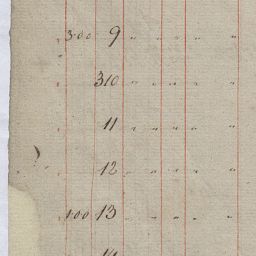 " 300 9 " " " " "
" 310 " " " " "
11 " " " " "
" 12 " " " " "
" 100 13 " " " "